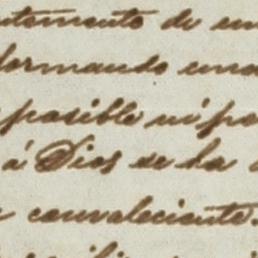 utamente de un
formando una
posible ni po
á Dios de la
convaleciente.